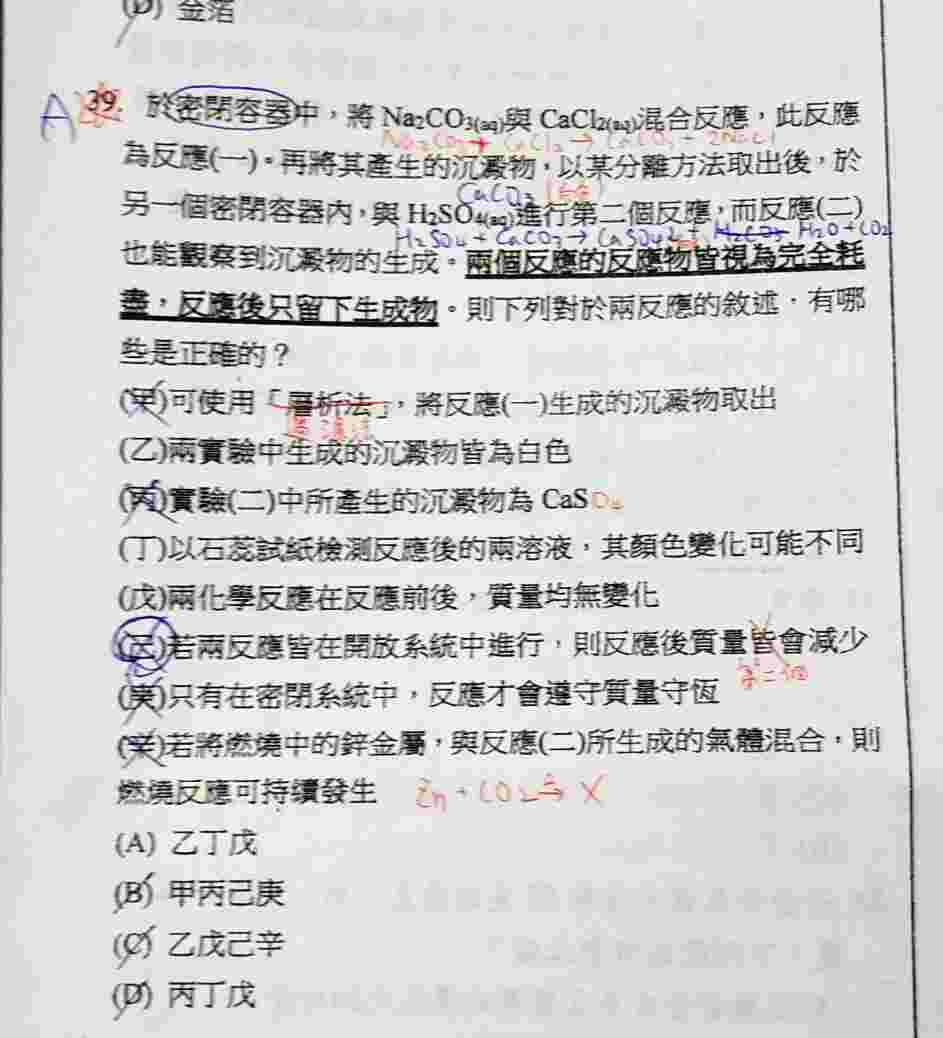 (D) 金箔
A 39. 於密閉容器中，將 Na₂CO₃(aq)與 CaCl₂(aq)混合反應，此反應
Na₂CO₃ + CaCl₂ → CaCO₃ + 2NaCl
為反應(一)。再將其產生的沉澱物，以某分離方法取出後，於
CaCO₃ (白色)
另一個密閉容器內，與 H₂SO₄(aq)進行第二個反應，而反應(二)
H₂SO₄ + CaCO₃ → CaSO₄ + H₂CO₃ H₂O + CO₂
也能觀察到沉澱物的生成。兩個反應的反應物皆視為完全耗
盡，反應後只留下生成物。則下列對於兩反應的敘述，有哪
些是正確的？
(甲)可使用「層析法」，將反應(一)生成的沉澱物取出
過濾法
(乙)兩實驗中生成的沉澱物皆為白色
(丙)實驗(二)中所產生的沉澱物為 CaSO₄
(丁)以石蕊試紙檢測反應後的兩溶液，其顏色變化可能不同
(戊)兩化學反應在反應前後，質量均無變化
(己)若兩反應皆在開放系統中進行，則反應後質量皆會減少
第二個
(庚)只有在密閉系統中，反應才會遵守質量守恆
(辛)若將燃燒中的鋅金屬，與反應(二)所生成的氣體混合，則
燃燒反應可持續發生 Zn + CO₂ → X
(A) 乙丁戊
(B) 甲丙己庚
(C) 乙戊己辛
(D) 丙丁戊